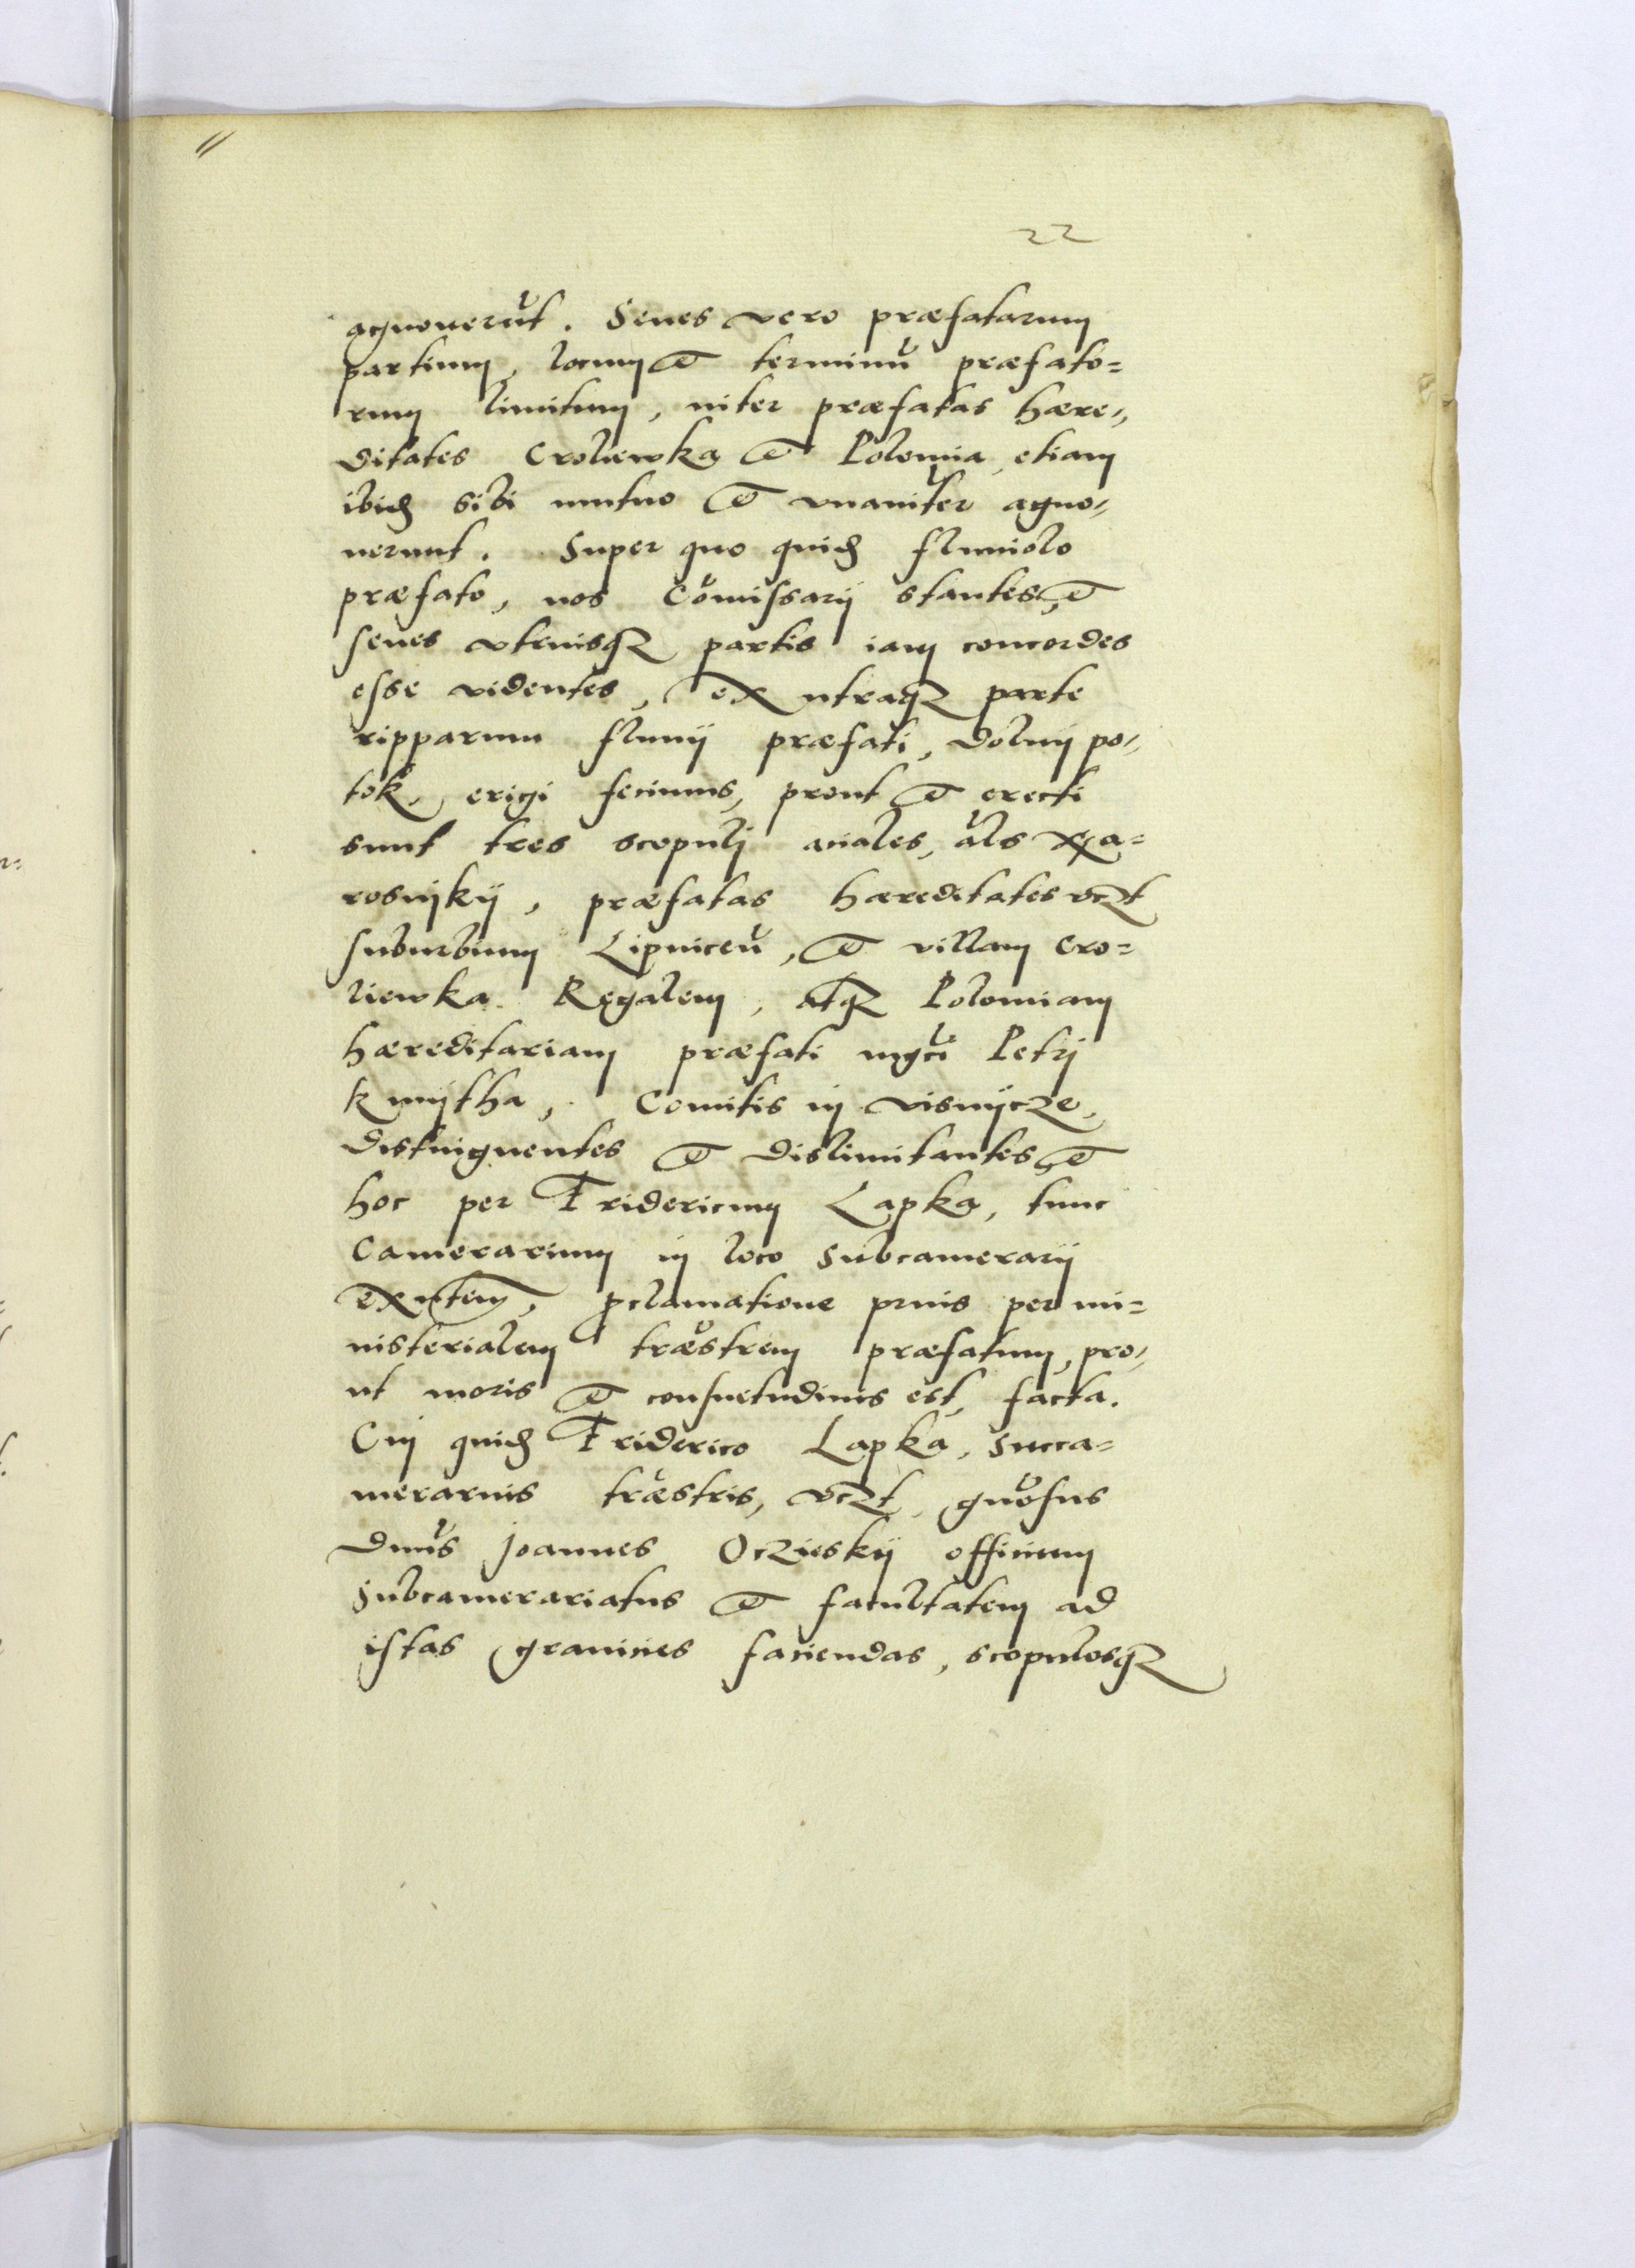 22
agnouerũt. Senes vero præfatarum
partium, locum et terminũ præfato=
rum limitum, inter præfatas hære,,
ditates Croliewka et Polomia, etiam
ibid. sibi mutuo et vnanĩter agno,,
uerunt. Super quo quid. fluuiolo
præfato, nos Cõmissarij stantes, et
senes vtriusq3 partis iam concordes
esse videntes, ex utraq3 parte
ripparum fluuij præfati, Dolnij po,,
tok, erigi fecimus, prout et erecti
sunt tres scopulj aciales, als
rosnijkij, præfatas hæreditates vc3t
suburbium Lipniceñ, et villam Cro=
liewka Regalem, atq3 Polomiam
hæreditariam præfati mgci Petrj
kmijtha, Comitis in visnijcze,
distinguentes et dislimitantes, et
hoc per Fridericum Lapka, tunc
Camerarium in loco Subcamerarij
exñtem, pclamatione prius per mi=
nisterialem træstrem præfatum, pro,,
ut moris et consuetudinis est, facta.
Cui quid. Friderico Lapka, Succa=
merarius træstris, vc3t, gñosus
Dnus Joannes Oczieskij officium
Subcamerariatus et facultatem ad
istas granicies faciendas, scopulosq3